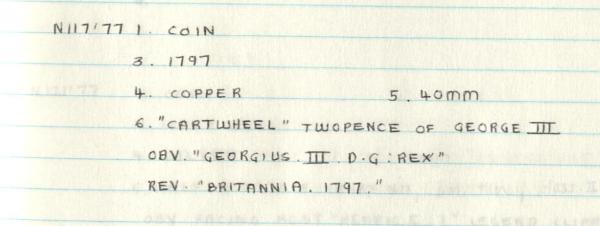 N117'77 1. COIN
3. 1797
4. COPPER 5. 40mm
6. "CARTWHEEL" TWOPENCE OF GEORGE III
OBV. "GEORGIUS. III. D.G: REX"
REV. "BRITANNIA. 1797."